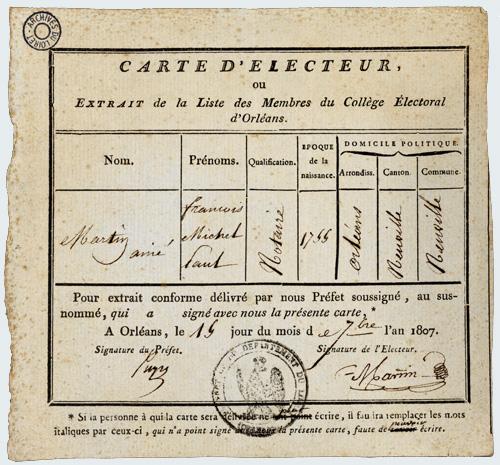 ARCHIVES DU LOIRET
CARTE D'ELECTEUR,
ou
EXTRAIT de la Liste des Membres du Collège Électoral
d'Orléans.
Nom. Prénoms. Qualification. EPOQUE de la naissance. DOMICILE POLITIQUE. Arrondiss. Canton. Commune.
Martin ainé, françois Michel Paul Notaire 1755 orléans Neuville Neuville
Pour extrait conforme délivré par nous Préfet soussigné, au sus-
nommé, qui a signé avec nous la présente carte,*
A Orléans, le 15 jour du mois d e 7bre l'an 1807.
Signature du Préfet. Signature de l'Electeur.
Martin
DEPARTEMENT DU
* Si la personne à qui la carte sera délivrée ne point écrire, il faudra remplacer les mots
italiques par ceux-ci, qui n'a point signé avec nous la présente carte, faute de savoir écrire.